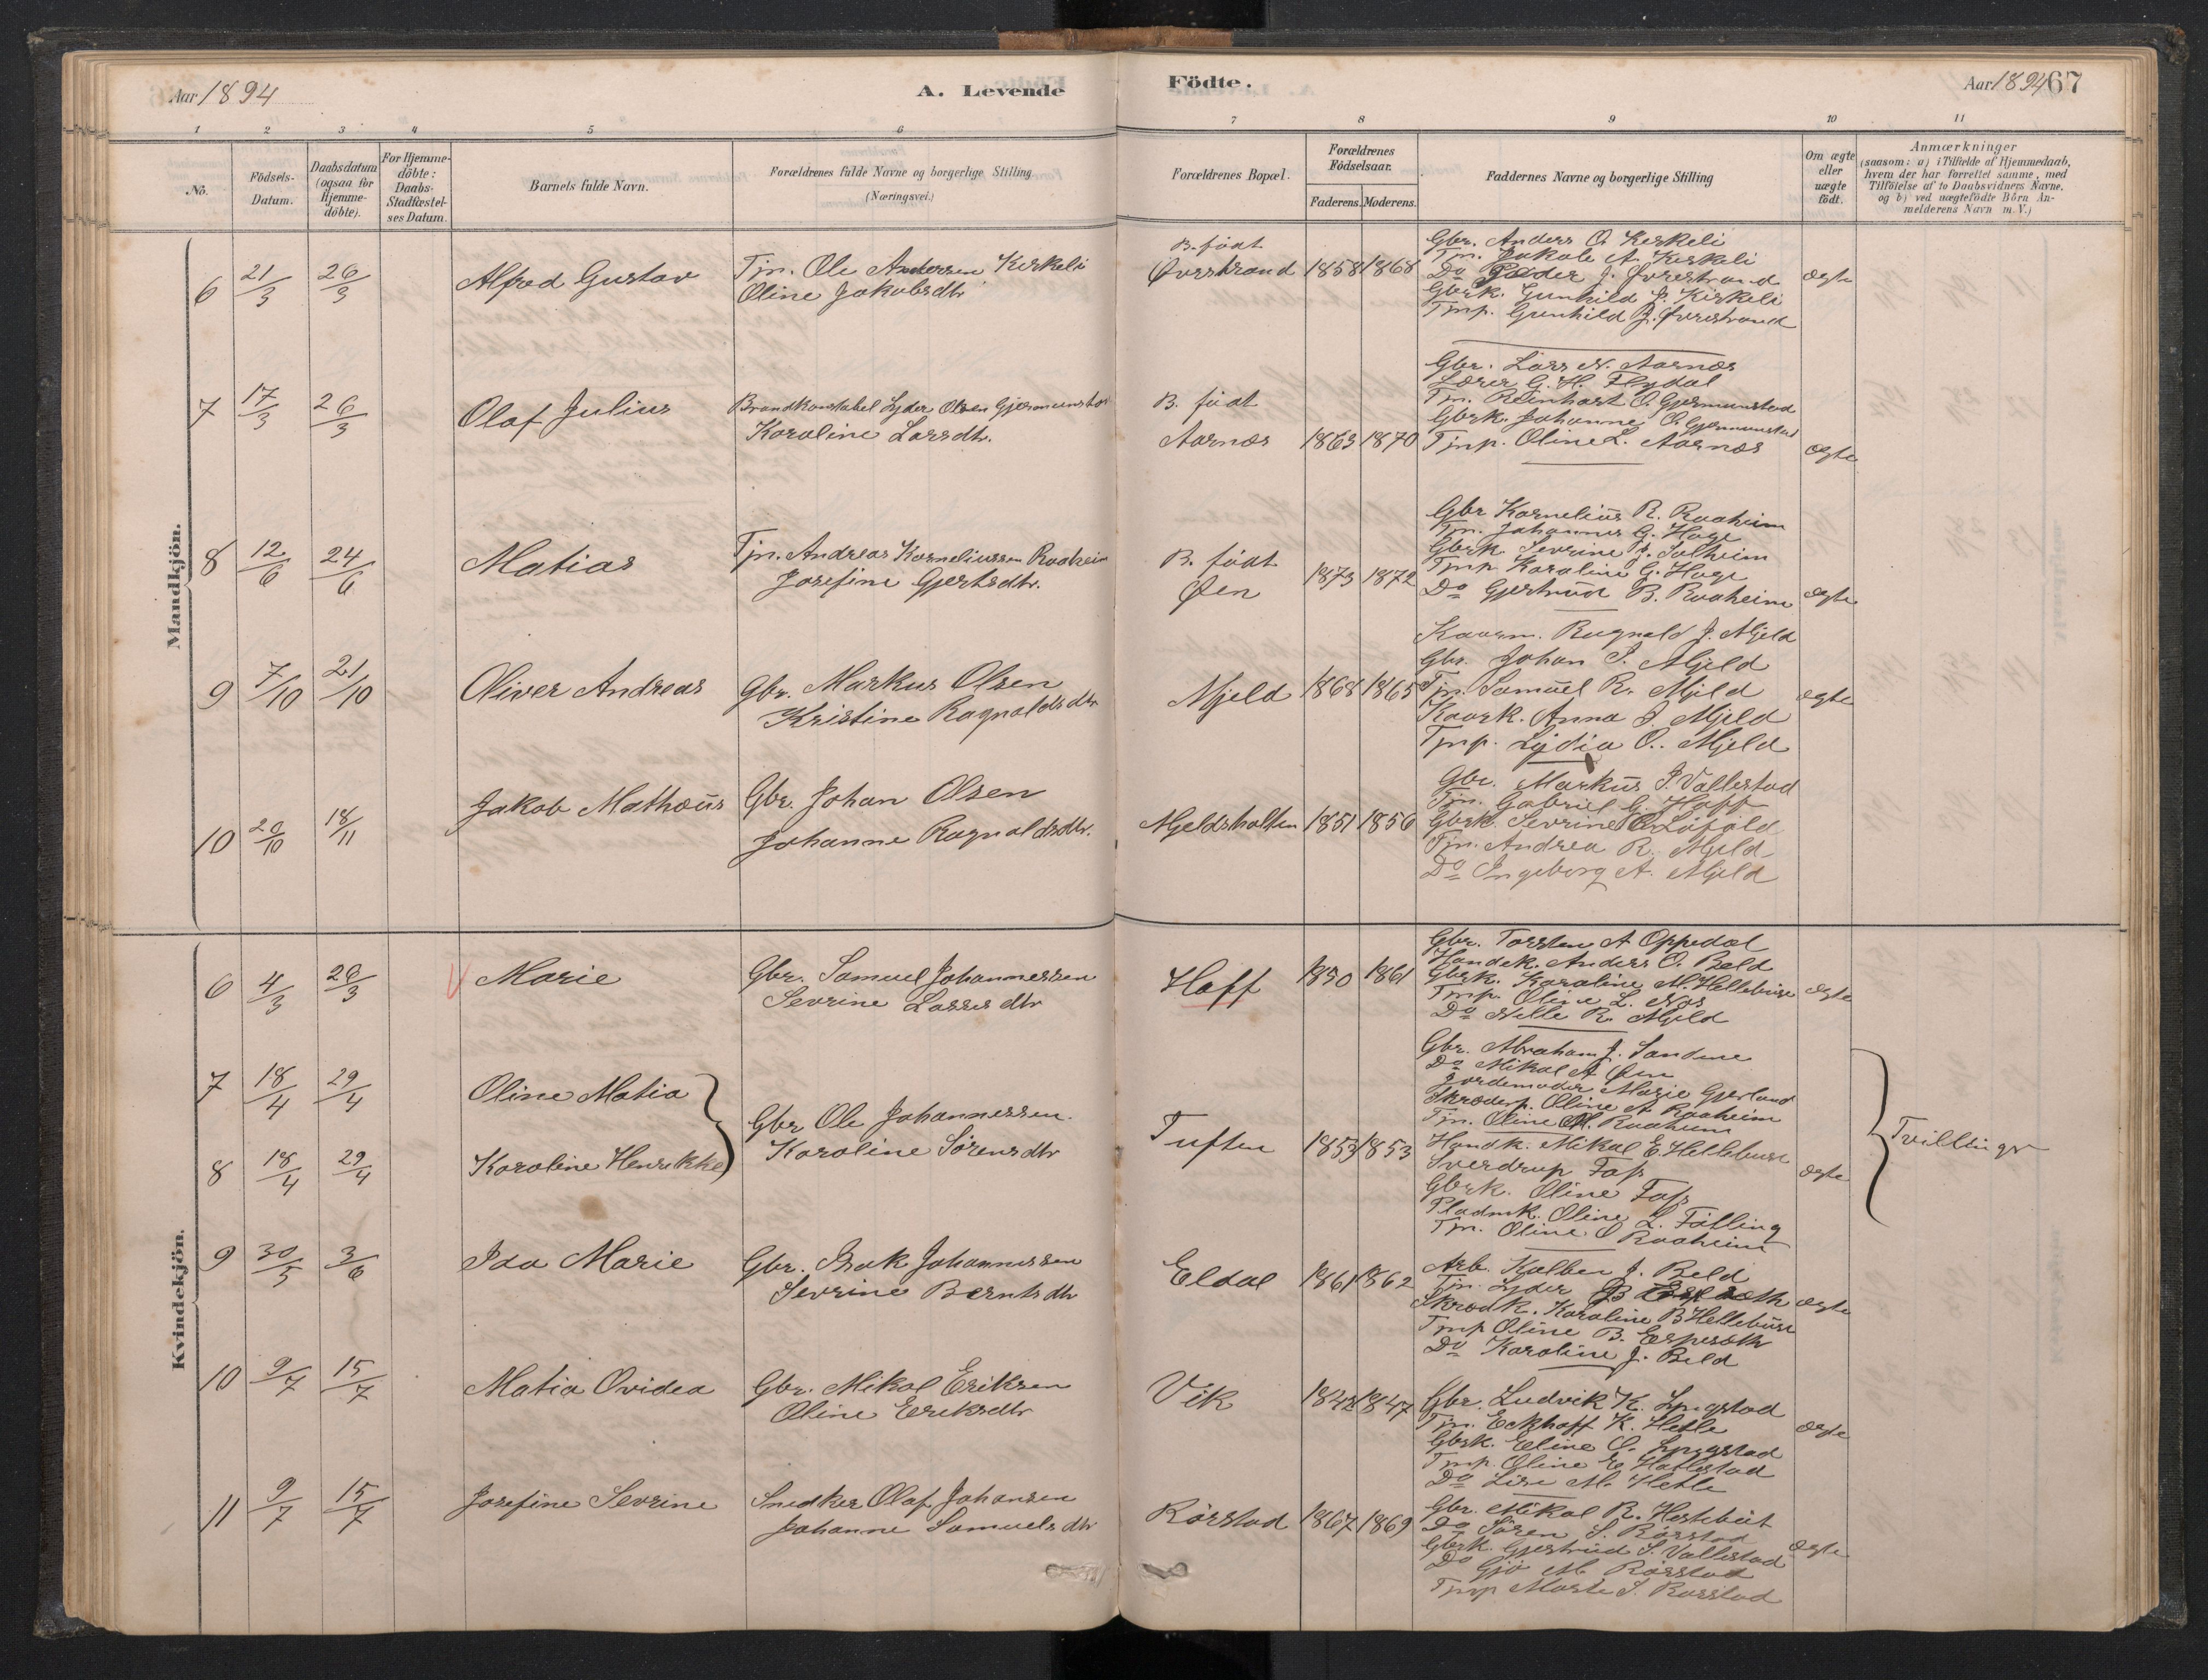 Aar 1894
A. Levende
Födte.
Aar 1894
67
1 2 3 4 5 6 7 8 9 10 11
No.
Födsels-Datum.
Daabsdatum (ogsaa for Hjemme-döbte).
For Hjemme-döbte: Daabs-Stadfæstel-ses Datum.
Barnets fulde Navn.
Forældrenes fulde Navne og borgerlige Stilling
(Næringsvei.)
Forældrenes Bopæl.
Forældrenes Födselsaar.
Faderens. Moderens.
Faddernes Navne og borgerlige Stilling
Om ægte eller uægte födt.
Anmærkninger
(saasom: a) i Tilfælde af Hjemmedaab,
hvem der har forrettet samme, med
Tilföielse af to Daabsvidners Navne,
og b) ved uægtefödte Börn An-
melderens Navn m.V.)
Mandkjön.
6 21/3 26/3 Alfred Gustav
Tjn. Ole Andersen Kirkeli
Oline Jakobsdtr
B. født
Øvrstrand 1858 1868
Gbr. Anders O. Kirkeli
Tjn. Jakob A. Kirkeli
Do Peder J. Øvrestrand
Gbrk. Gunhild J. Kirkeli
Tjnp. Gunhild J. Øvrestrand
ægte
7 17/3 26/3 Olaf Julius
Brandkonstabel Lyder Olsen Gjermunstad
Karoline Larsdtr.
B. født
Aarnæs 1863 1870
Gbr. Lars N. Aarnæs
Lærer G. H. Flydal
Tjn. Reinhart O. Gjermunstad
Gbrk. Johanne O. Gjermunstad
Tjnp. Oline L. Aarnæs
ægte
8 12/6 24/6 Matias
Tjn. Andreas Korneliussen Raaheim
Josefine Gjertsdtr.
B. født
Øen 1873 1872
Gbr Kornelius R. Raaheim
Tjn. Johannes G. Hage
Gbrk. Sevrine J. Solheim
Tjnp Karoline G. Hage
Do Gjertrud B. Raaheim
ægte
9 7/10 21/10 Oliver Andreas
Gbr. Markus Olsen
Kristine Ragnaldsdtr
Mjeld 1868 1865
Kaarm. Ragnald J. Mjeld
Gbr. Johan I. Mjeld
Tjn. Samuel R. Mjeld
Kaark. Anna J. Mjeld
Tjnp. Lydia O. Mjeld
ægte
10 20/10 18/11 Jakob Mathæus
Gbr. Johan Olsen
Johanne Ragnaldsdtr.
Mjeldsholten 1851 1856
Gbr. Markus J. Vallestad
Tjn. Gabriel G. Haff
Gbrk. Sevrine
Tjn. Andrea R. Mjeld
Do Ingeborg A. Mjeld
Kvindekjön.
6 4/3 26/3 V Marie
Gbr. Samuel Johannessen
Sevrine Lassesdtr
Haff 1850 1861
Gbr. Torsten A Oppedal
Handek. Anders O. Beld
Gbrk. Karoline M. Hellebuse
Tjnp. Oline L. Nos
Do Nille R. Mjeld
ægte
7 18/4 29/4 Oline Matia
8 18/4 29/4 Karoline Henrikke
Gbr Ole Johannessen.
Karoline Sørensdtr
Tuften 1853 1853
Gbr. Abraham J. Sandnæ
Do Mikal A Øen
Jordemoder Marie Gjerland
Skræderp. Oline A Raaheim
Tjn. Oline M. Raaheim
Handk. Mikal E. Hellebuse
Sverdrup Foss
Gbrk. Oline Foss
Pladsmk. Oline L. Fatling
Tjn. Oline O Raaheim
ægte
Tvillinger
9 30/5 3/6 Ida Marie
Gbr. Isak Johannessen
Sevrine Berntsdtr
Eldal 1861 1862
Arb. Kolben J. Beld
Tjn. Lyder B
Skrædk. Karoline B Hellebuse
Tjnp Oline B. Espeseth
Do Karoline J. Beld
ægte
10 9/7 15/7 Matia Ovidea
Gbr. Mikal Eriksen
Oline Eriksdtr
Vik 1842 1847
Gbr. Ludvik K. Lyngstad
Tjn. Eckhoff K. Hetle
Gbrk. Eline O. Lyngstad
Tjnp. Oline E. Hatlestad
Do Lise M. Hetle
ægte
11 9/7 15/7 Josefine Sevrine
Snedker Olaf Johansen
Johanne Samuelsdtr
Rørstad 1867 1869
Gbr. Mikal R. Hestebeit
Do Søren S. Rørstad
Gbrk. Gjertrud S. Vallestad
Do Gjø M. Rørstad
Tjnp Marte S. Rørstad
ægte